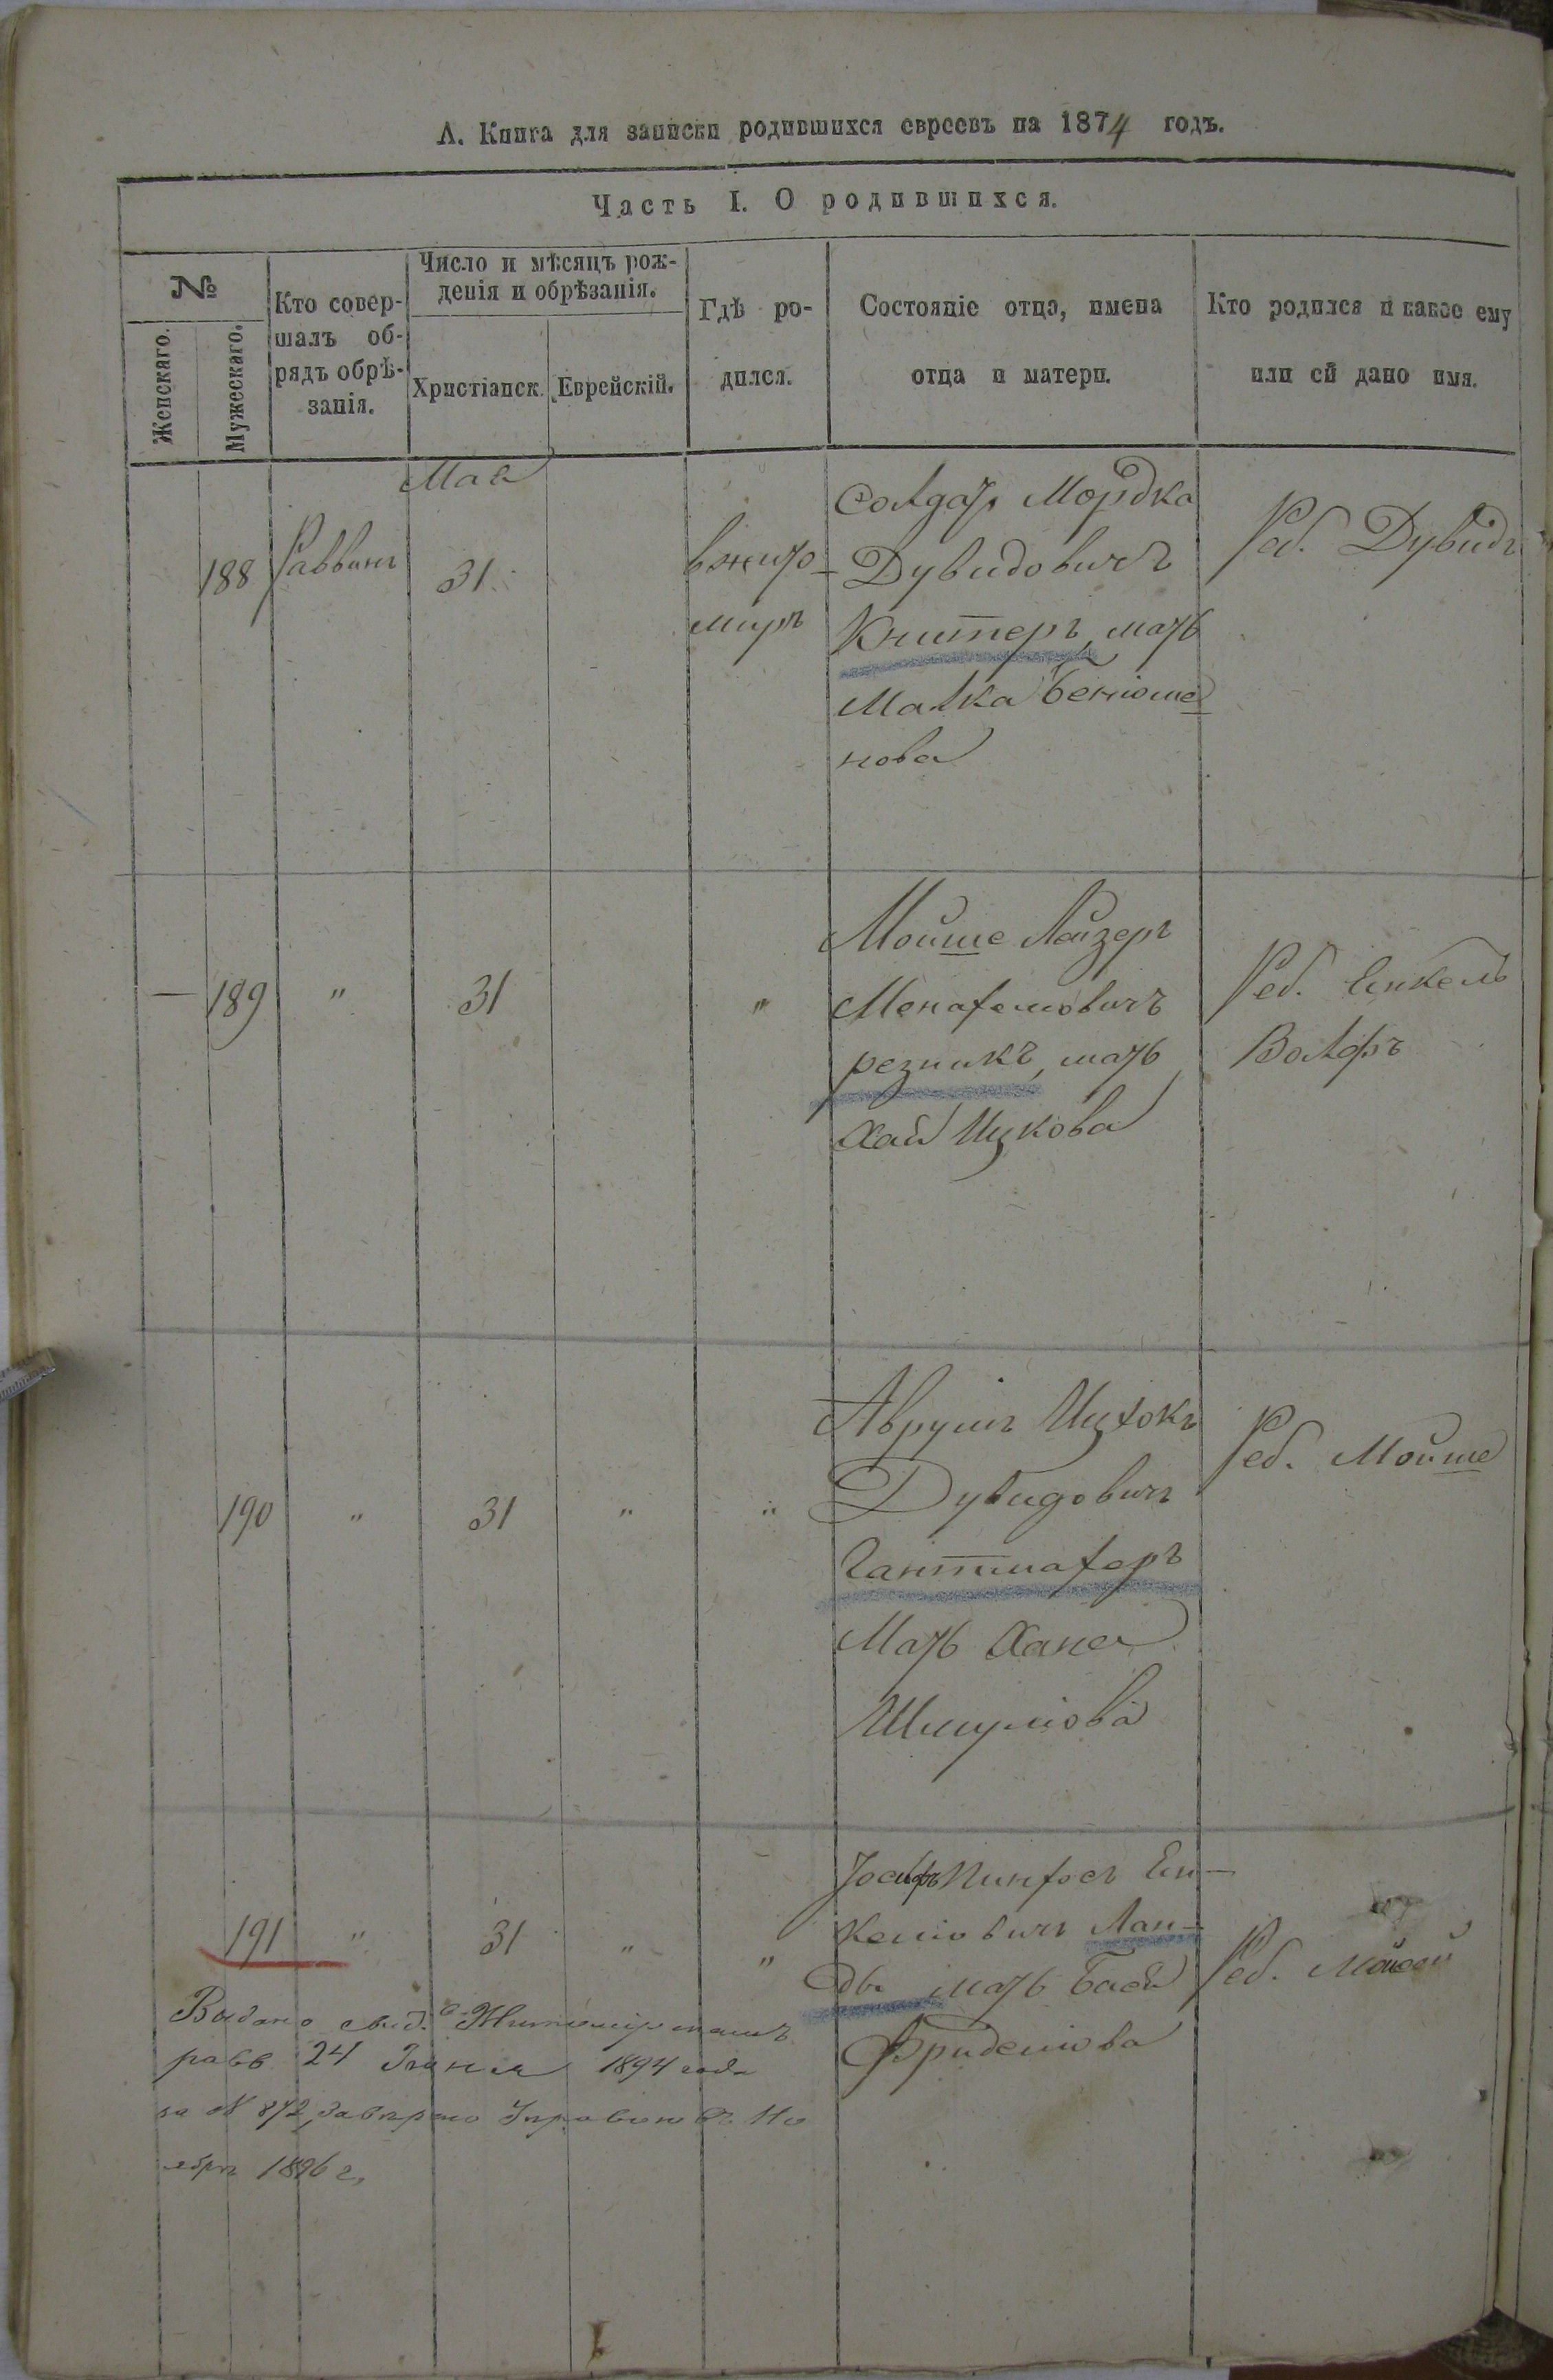 А. Книга для записки родившихся евреевъ на 1874 годъ.
Часть I. О родившихся.
№
Женскаго.
Мужескаго.
Кто совер-
шалъ об-
рядъ обрѣ-
занія.
Число и мѣсяцъ рож-
денія и обрѣзанія.
Христіанск.
Еврейскій.
Гдѣ ро-
дился.
Состояніе отца, имена
отца и матери.
Кто родился и какое ему
или ей дано имя.
Мая
188
Раввинъ
31
в жито-
миръ
Солдат Мордка
Дувидовичъ
Книтеръ, мать
Малка Бенюме
нова
Реб. Дувидъ
— 189 " 31 "
Мойше Лейзеръ
Менахемовичъ
резникъ, мать
Хая Ицкова
Реб. Енкель
Волфъ
190 " 31 " "
Аврумъ Ицхокъ
Дувидовичъ
Гантмахеръ
Мать Хана
Шмулiова
Реб. Мойше
191 " 31 " "
Іосифъ Пинхосъ Ен-
келiовичъ Лан-
да мать Бася
Фриделiова
Реб. Мойсей
Видано свид.
равв 24 1894 года
за № 872
ября 1896 г.